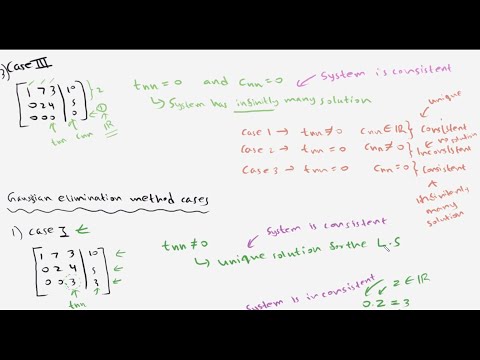 3) Case III
[ 1 7 3 | 10
0 2 4 | 5
0 0 0 | 0 ] } 2
IR
tnn cnn
tnn = 0 and cnn = 0
System is consistent
↳ System has infinitly many solution
unique
Case 1 → tnn ≠ 0 cnn ∈ IR } Consistent
no solution
Case 2 → tnn = 0 cnn ≠ 0 } Inconsistent
Case 3 → tnn = 0 cnn = 0 } Consistent
infinitely
many
solution
Gaussian elimination method cases
1) case I
[ 1 7 3 | 10
0 2 4 | 5
0 0 3 | 3 ]
tnn
System is consistent
tnn ≠ 0
↳ unique solution for the L.S
System is inconsistent
2 ∈ IR
0.2 = 3